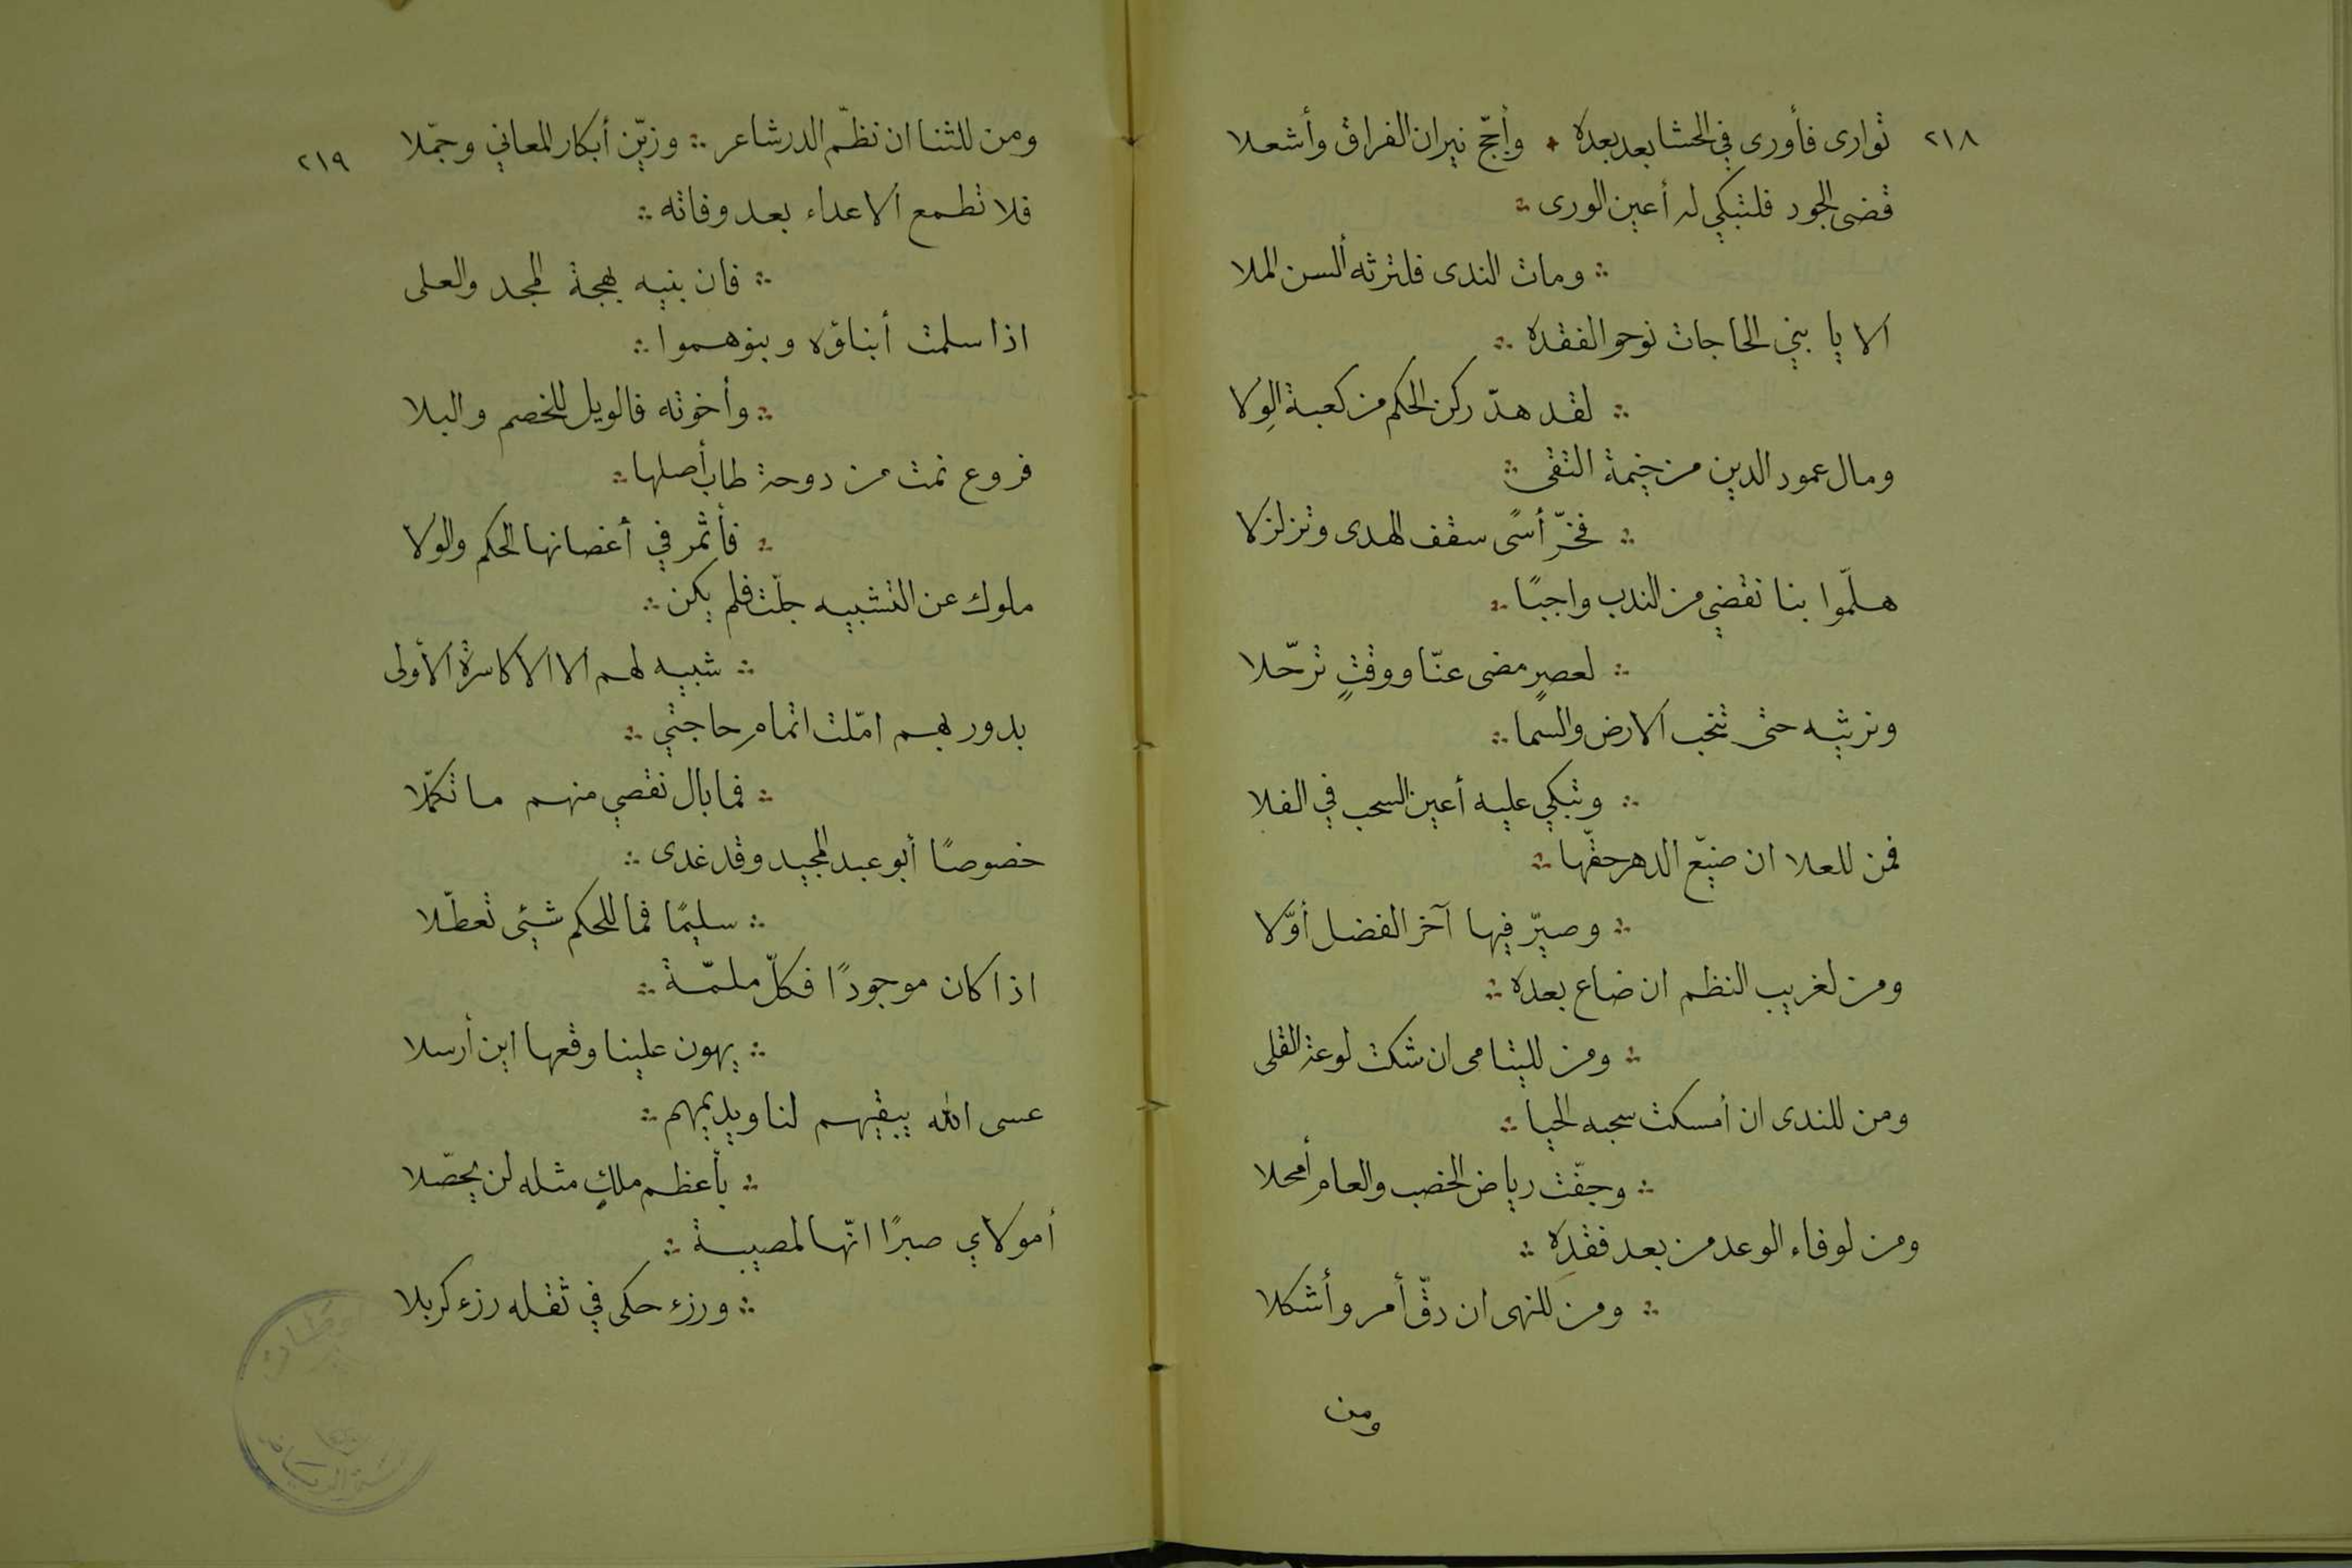 ٢١٨
توارى فأورى في الحشا بعد بعده ٠ وأجّج نيران الفراق وأشعلا
قضى الجود فلتبكي له أعين الورى ∴
∴ ومات الندى فلترثه ألسن الملا
الا يا بني الحاجات نوحوا لفقده ∴
∴ لقد هدّ ركن الحكم من كعبة الوِلا
ومال عمود الدين من خيمة التقى ∴
∴ فخرّ أسًى سقف الهدى وتزلزلا
هلمّوا بنا نقضي من الندب واجبًا ∴
∴ لعصرٍ مضى عنّا ووقتٍ ترحّلا
ونرثيه حتى تنحب الارض والسما ∴
∴ وتبكي عليه أعين السحب في الفلا
فمن للعلا ان ضيّع الدهر حقّها ∴
∴ وصيّر فيها آخر الفضل أوّلا
ومن لغريب النظم ان ضاع بعده ∴
∴ ومن لليتامى ان شكت لوعة القلى
ومن للندى ان أمسكت سحبه الحيا ∴
∴ وجفّت رياض الخصب والعام أمحلا
ومن لوفاء الوعد من بعد فقدِه ∴
∴ ومن للنهى ان دقّ أمر وأشكلا
ومن
٢١٩
ومن للثنا ان نظّم الدر شاعر ∴ وزيّن أبكار المعاني وجمّلا
فلا تطمع الاعداء بعد وفاته ∴
∴ فان بنيه بهجة المجد والعلى
اذا سلمت أبناؤه وبنوهموا ∴
∴ وأخوته فالويل للخصم والبلا
فروع نمت من دوحة طاب أصلها ∴
∴ فأثمر في أغصانها الحكم والولا
ملوك عن التشبيه جلّت فلم يكن ∴
∴ شبيه لهم الا الاكاسرة الأولى
بدور بهم امّلت اتمام حاجتي ∴
∴ فما بال نقصي منهم ما تكمّلا
خصوصًا أبو عبد المجيد وقد غدى ∴
∴ سليمًا فما للحكم شيئ تعطّلا
اذا كان موجودًا فكلّ ملمّة ∴
∴ يهون علينا وقعها اين أرسلا
عسى الله يبقيهم لنا ويديمهم ∴
∴ بأعظم ملكٍ مثله لن يحصّلا
أمولاي صبرًا انّها لمصيبة ∴
∴ ورزء حكى في ثقله رزء كربلا